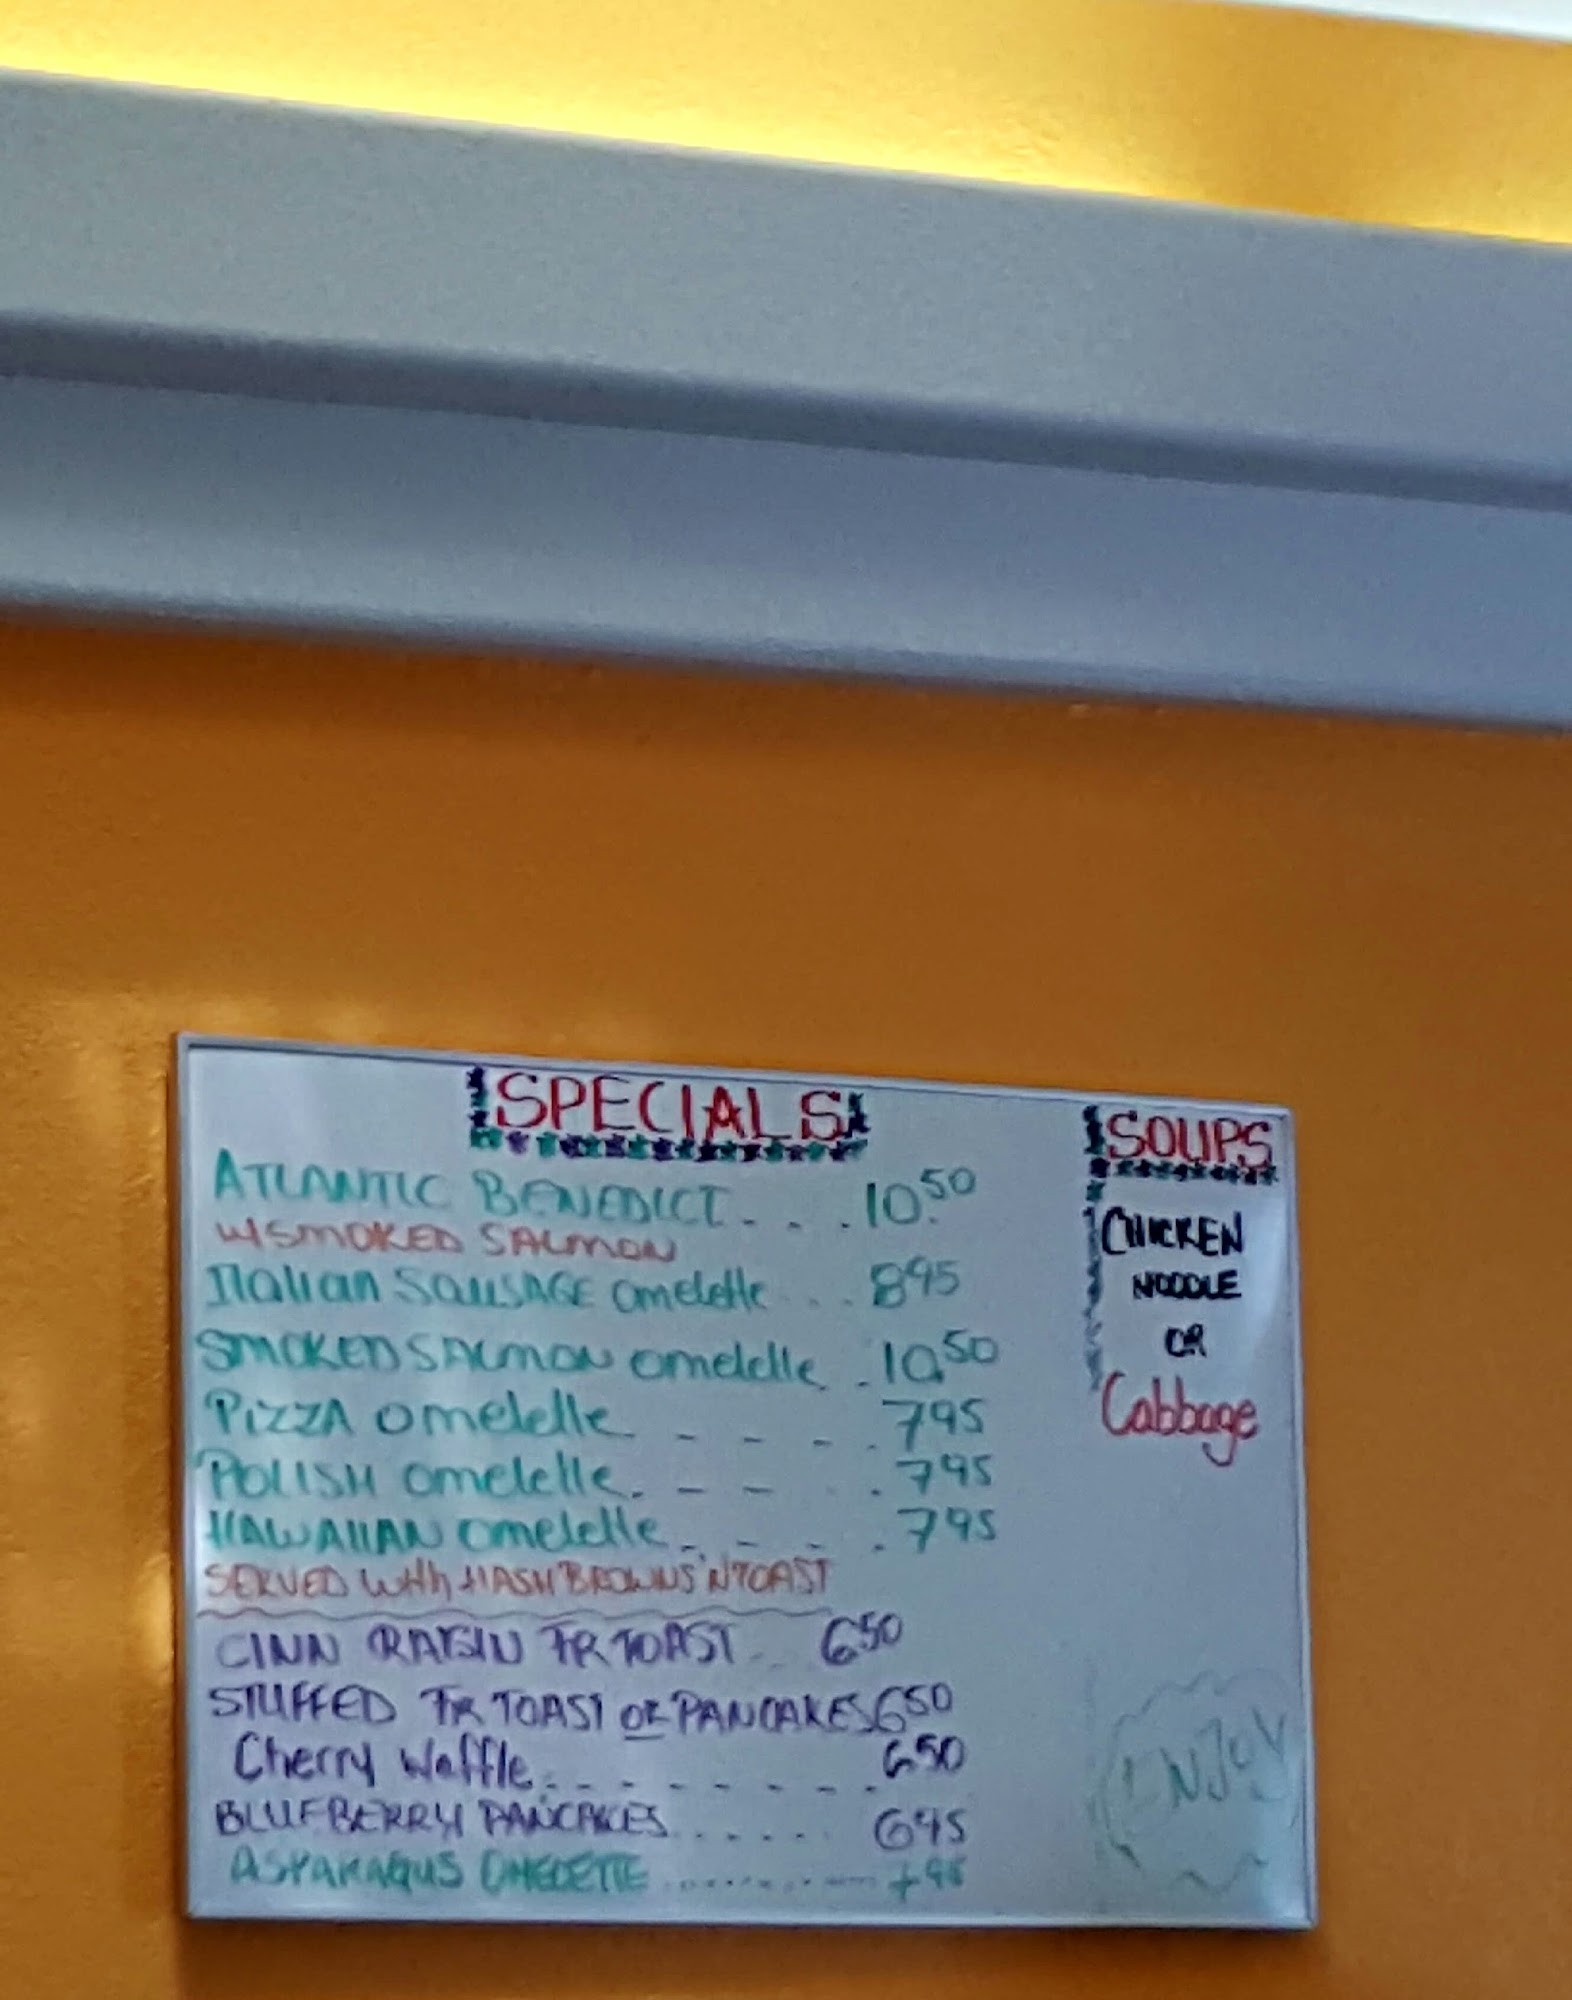 SPECIALS
ATLANTIC BENEDICT . . . 10.50
W/SMOKED SALMON
Italian SAUSAGE omelette . . . 8 95
SMOKED SALMON omelette . . 10.50
PIZZA omelette - - - . 7 95
POLISH omelette . - - . 7 95
HAWAIIAN omelette . - . . 7 95
SERVED with HASH BROWNS 'N TOAST
CINN RAISIN FR TOAST . . 6 50
STUFFED FR TOAST OR PANCAKES 6 50
Cherry Waffle . - - - - - - . 6 50
BLUEBERRY PANCAKES . . . . . . 6 95
ASPARAGUS OMELETTE ............
SOUPS
CHICKEN
NOODLE
OR
Cabbage
ENJOY